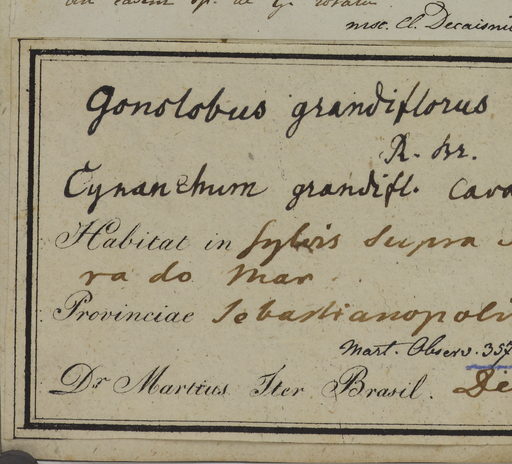 msc. Cl. Decaisn
Gonolobus grandiflorus
R. Br.
Cynanchum grandifl. Cava
Habitat in Sylvis Supra
ra do Mar
Provinciae Sebastianopoli
Mart. Observ. 357
Dr Martius Iter Brasil. Di